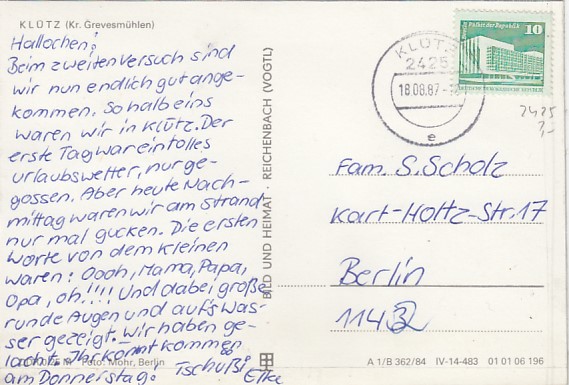 KLÜTZ (Kr. Grevesmühlen)
Hallochen!
Beim zweiten Versuch sind
wir nun endlich gut ange-
kommen. So halb eins
waren wir in Klütz. Der
erste Tag war ein tolles
Urlaubswetter, nur ge-
gossen. Aber heute Nach-
mittag waren wir am Strand
nur mal gucken. Die ersten
Worte von dem kleinen
waren: Oooh, Mama, Papa,
Opa, oh!!!! Und dabei große
runde Augen und auf's Was-
ser gezeigt. Wir haben ge-
lacht. Ihr kommt kommen
am Donnerstag. Tschüßi Elke
Foto: Mohr, Berlin
BILD UND HEIMAT · REICHENBACH (VOGTL)
KLÜTZ
2425
18.08.87
e
Palast der Republik
10
2425
Fam. S. Scholz
Karl-Holtz-Str. 17
Berlin
1142
A 1/B 362/84 IV-14-483 01 01 06 196